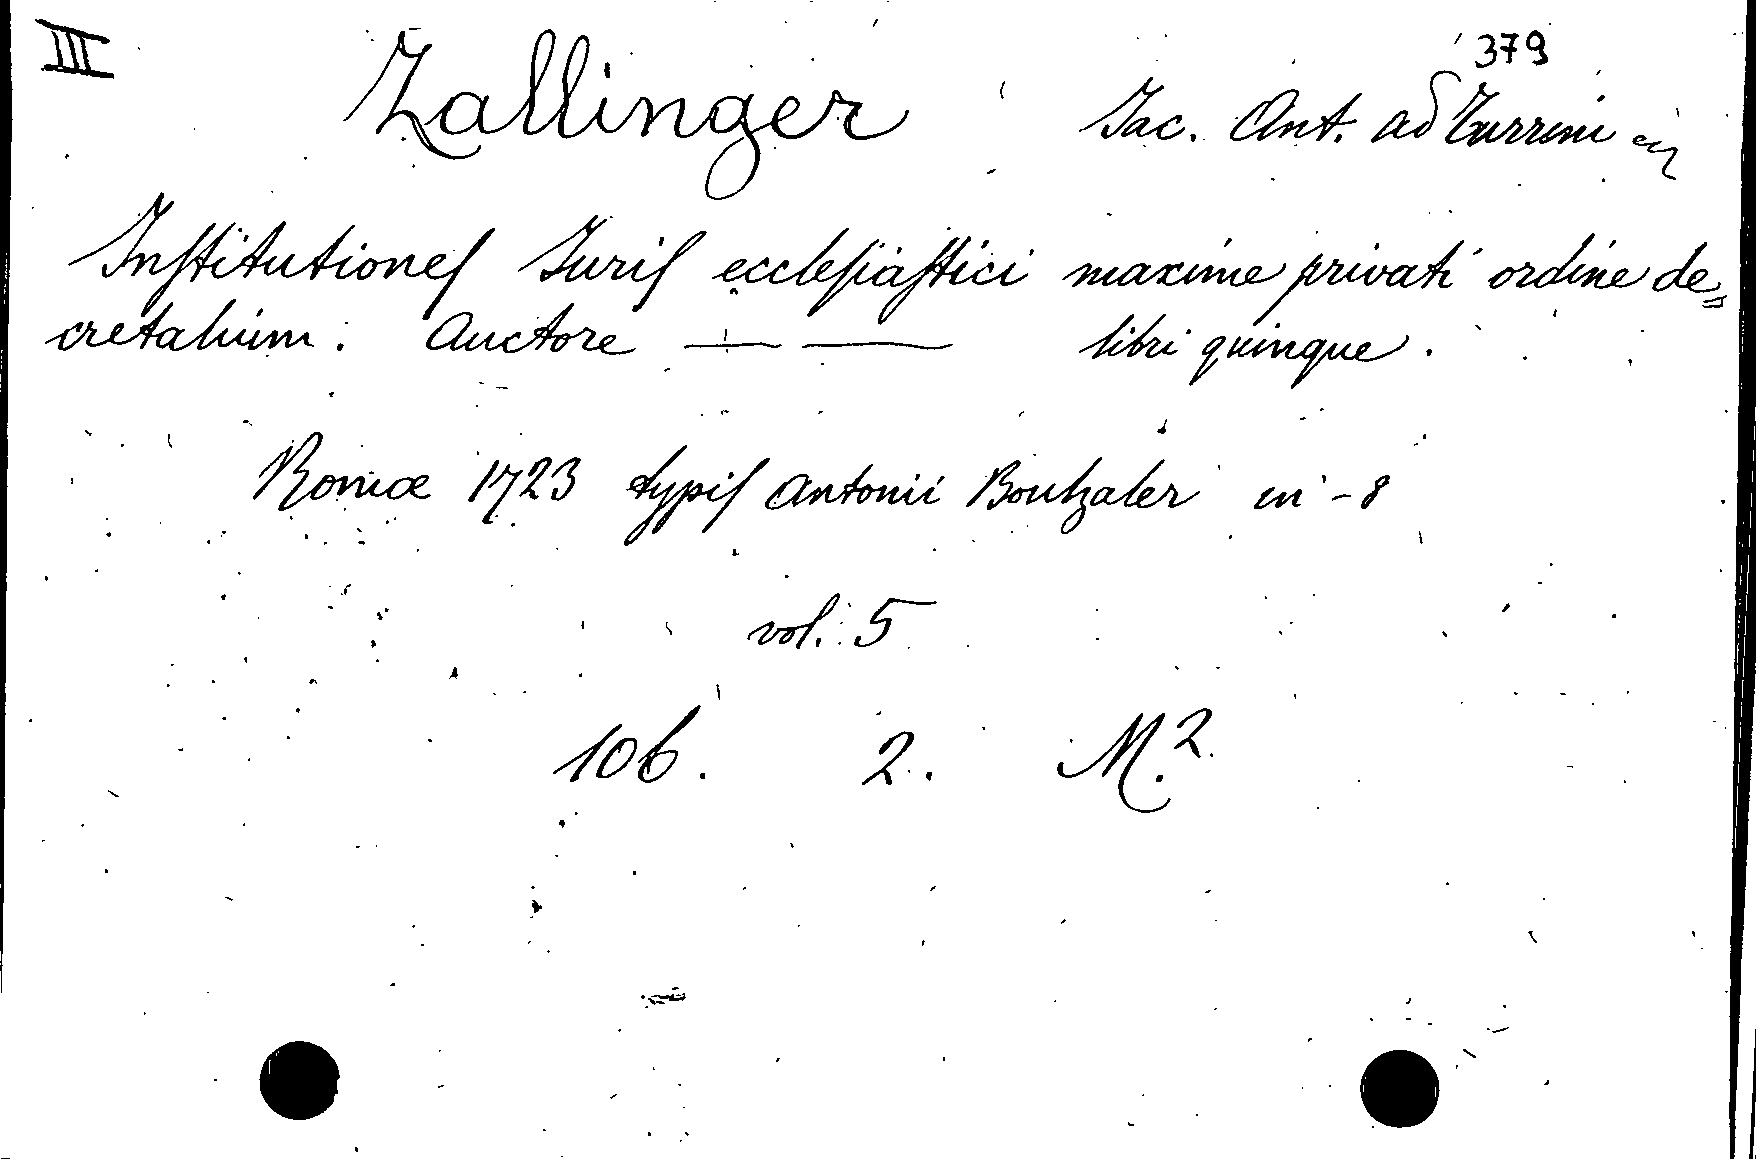 III
379
Zallinger Jac. Ant. ad Turrim
Inſtitutioneſ Juriſ eccleſiaſtici maxime privati ordine de„
cretalium. Auctore — — libri quinque.
Romæ 1723 typiſ Antonii Boulzaler in - 8
vol. 5
106. 2. M.2